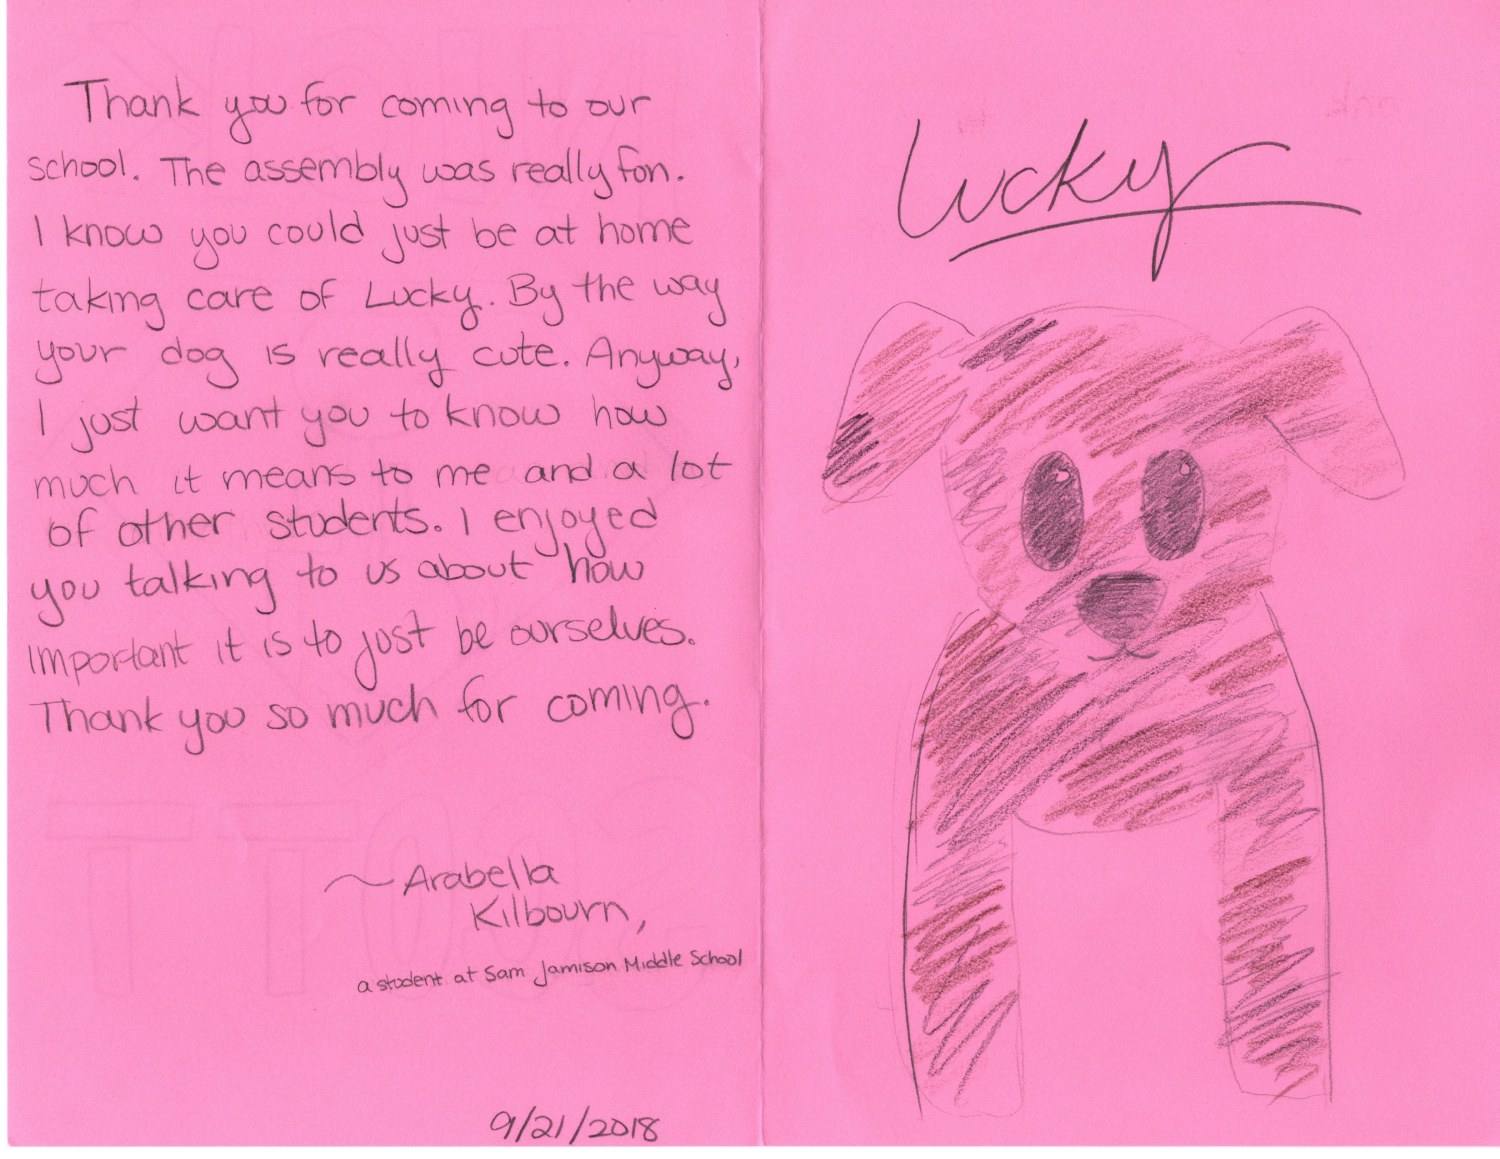 Thank you for coming to our
school. The assembly was really fun.
I know you could just be at home
taking care of Lucky. By the way
your dog is really cute. Anyway,
I just want you to know how
much it means to me and a lot
of other students. I enjoyed
you talking to us about how
important it is to just be ourselves.
Thank you so much for coming.
~Arabella
Kilbourn,
a student at Sam Jamison Middle School
9/21/2018
Lucky